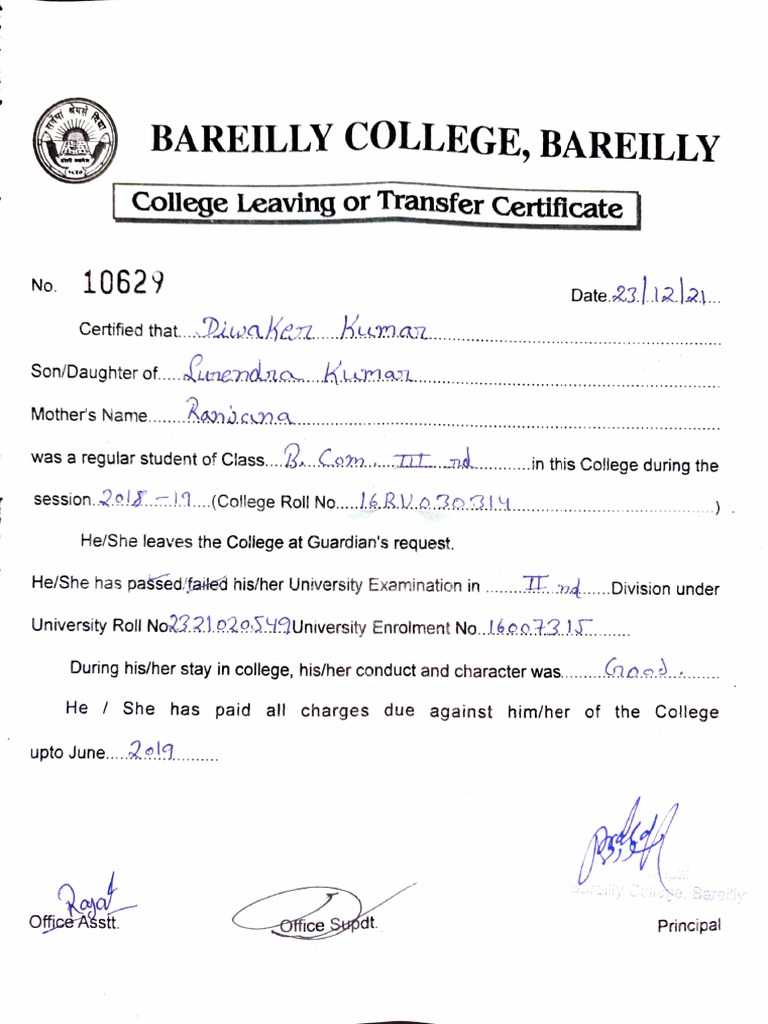 BAREILLY COLLEGE, BAREILLY
College Leaving or Transfer Certificate
No. 10629
Date 23/12/21
Certified that Diwaker Kumar
Son/Daughter of Surendra Kumar
Mother's Name Ranjana
was a regular student of Class B. Com. III nd in this College during the
session 2018-19 (College Roll No. 16RU030314)
He/She leaves the College at Guardian's request.
He/She has passed/failed his/her University Examination in II nd Division under
University Roll No 2321020549 University Enrolment No. 16007315
During his/her stay in college, his/her conduct and character was Good.
He / She has paid all charges due against him/her of the College
upto June 2019
Rajat
Bareilly College, Bareilly
Office Asstt.
Office Supdt.
Principal